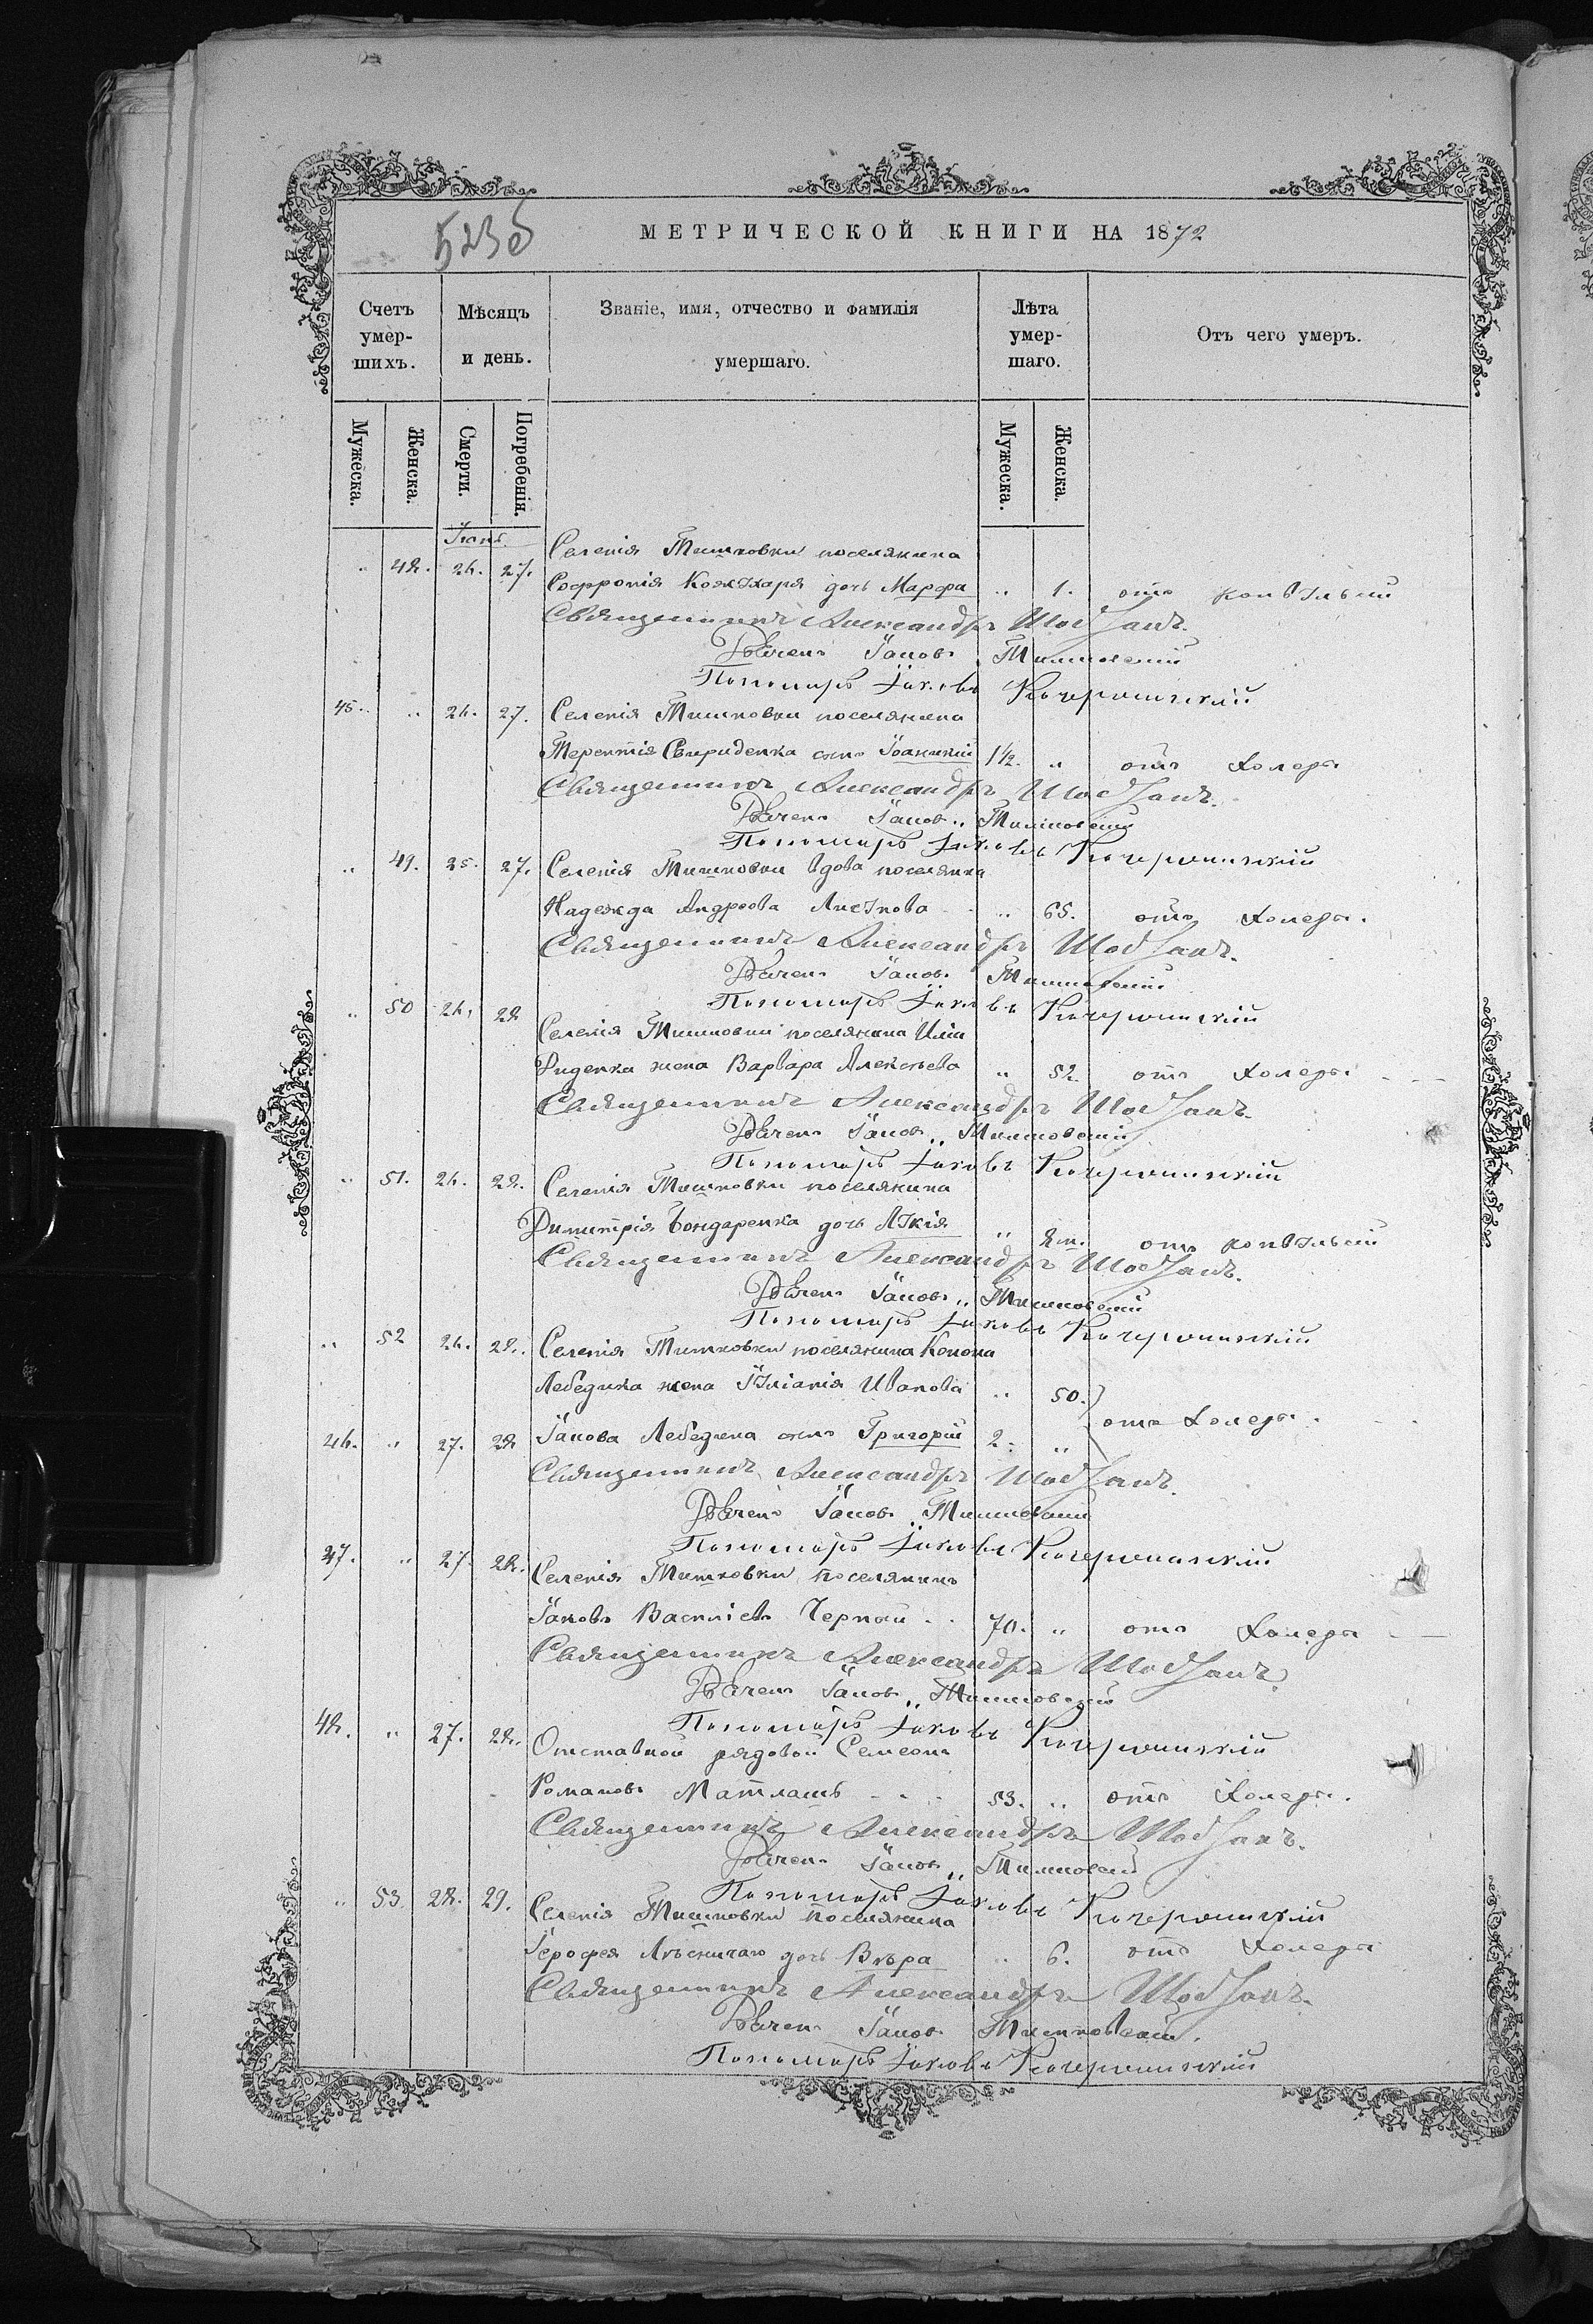 523об
МЕТРИЧЕСКОЙ КНИГИ НА 1872
Счетъ умер- шихъ. Мѣсяцъ и день. Званіе, имя, отчество и фамилія умершаго. Лѣта умер- шаго. Отъ чего умеръ.
Мужеска. Женска. Смерти. Погребенія. Мужеска. Женска.
Іюня.
Селенія Тишковки поселянина
„ 48. 26. 27. Софронія дочь Марфа „ 1. отъ конвульсій
Священникъ Александръ
Дьячекъ Іаковъ Тишковскій
Пономарь Іаковъ
45. „ 26. 27. Селенія Тишковки поселянина
Терентія Свириденка сынъ Іоанникій 1½. „ отъ холеры
Священникъ Александръ
Дьячекъ Іаковъ Тишковскій
Пономарь Іаковъ
„ 49. 25. 27. Селенія Тишковки вдова поселянка
Надежда Андреева „ 65. отъ холеры.
Священникъ Александръ
Дьячекъ Іаковъ Тишковскій
Пономарь Іаковъ
„ 50 26. 28 Селенія Тишковки поселянина Иліи
жена Варвара Алексѣева „ 52. отъ холеры
Священникъ Александръ
Дьячекъ Іаковъ Тишковскій
Пономарь Іаковъ
„ 51. 26. 28. Селенія Тишковки поселянина
Димитрія Бондаренка дочь „ 8 м. отъ конвульсій
Священникъ Александръ
Дьячекъ Іаковъ Тишковскій
Пономарь Іаковъ
„ 52 26. 28. Селенія Тишковки поселянина Конона
Лебедина жена Іуліанія Иванова „ 50.
отъ холеры.
46. „ 27. 28 Іакова Лебедина сынъ Григорій 2. „
Священникъ Александръ
Дьячекъ Іаковъ Тишковскій
Пономарь Іаковъ
47. „ 27. 28. Селенія Тишковки поселянинъ
Іаковъ Василіевъ Черный 70. „ отъ холеры
Священникъ Александръ
Дьячекъ Іаковъ Тишковскій
Пономарь Іаковъ
48. „ 27. 28. Отставной рядовой Симеонъ
Романовъ Матлашъ 53. „ отъ холеры.
Священникъ Александръ
Дьячекъ Іаковъ Тишковскій
Пономарь Іаковъ
„ 53. 28. 29. Селенія Тишковки поселянина
Іерофея Лѣсничаго дочь Вѣра „ 6. отъ холеры
Священникъ Александръ
Дьячекъ Іаковъ Тишковскій.
Пономарь Іаковъ